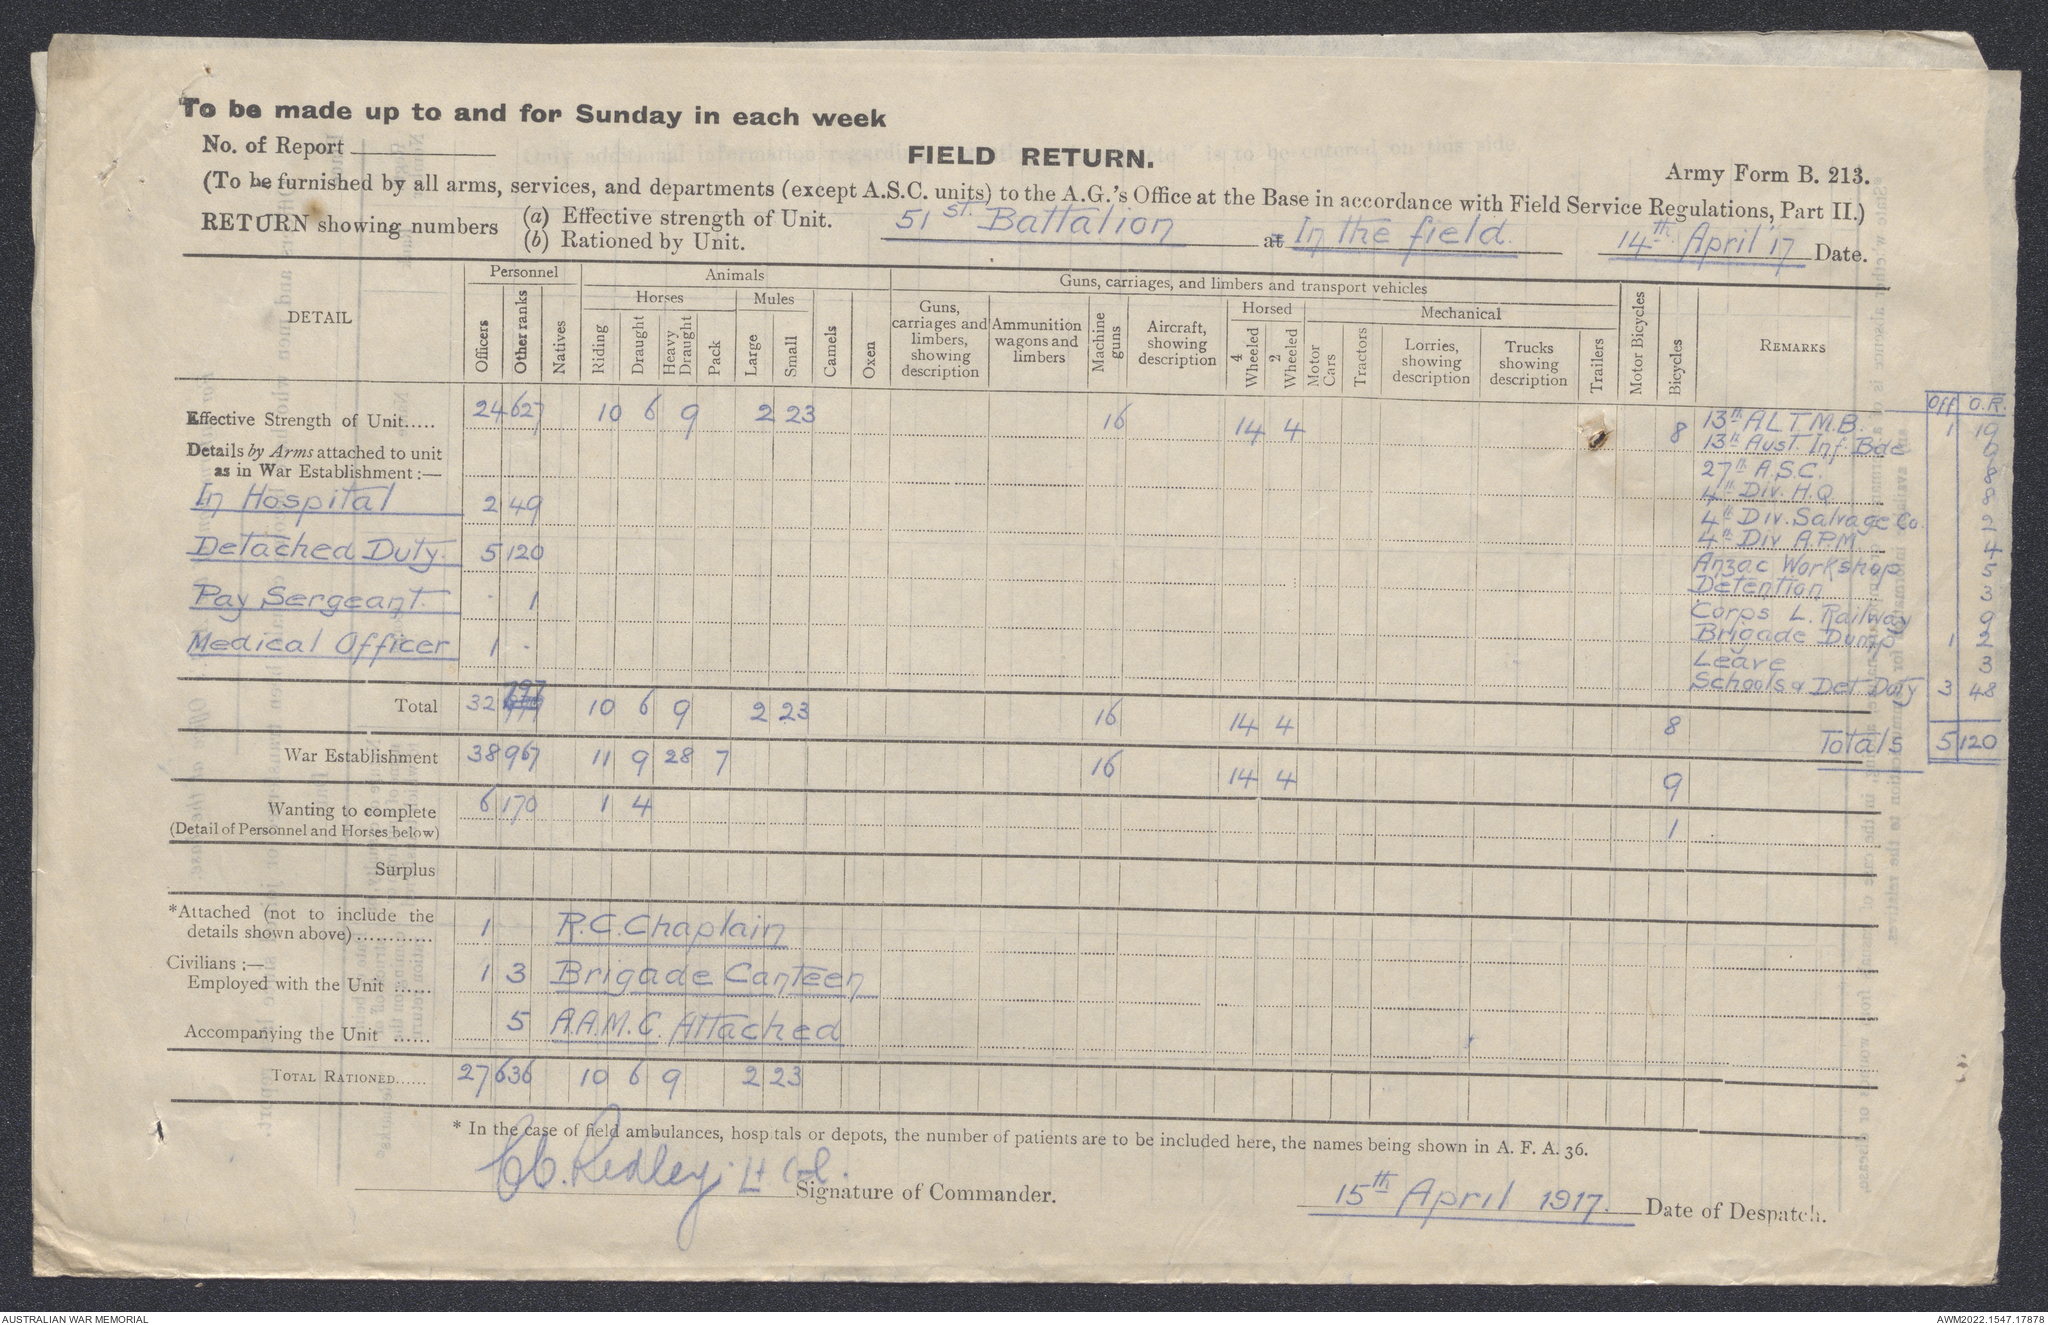 To be made up to and for Sunday in each week
No. of Report
FIELD RETURN.
Army Form B. 213.
(To be furnished by all arms, services, and departments (except A.S.C. units) to the A.G.'s Office at the Base in accordance with Field Service Regulations, Part II.)
RETURN showing numbers
(a) Effective strength of Unit.
(b) Rationed by Unit.
51st. Battalion at In the field. 14th April '17 Date.
DETAIL
Personnel
Animals
Guns, carriages, and limbers and transport vehicles
Horses
Mules
Horsed
Mechanical
Officers
Other ranks
Natives
Riding
Draught
Heavy Draught
Pack
Large
Small
Camels
Oxen
Guns, carriages and limbers, showing description
Ammunition wagons and limbers
Machine guns
Aircraft, showing description
4 Wheeled
2 Wheeled
Motor Cars
Tractors
Lorries, showing description
Trucks showing description
Trailers
Motor Bicycles
Bicycles
REMARKS
Off O.R.
Effective Strength of Unit..... 24 627 10 6 9 2 23 16 14 4 8
Details by Arms attached to unit
as in War Establishment :—
In Hospital 2 49
Detached Duty. 5 120
Pay Sergeant. 1
Medical Officer 1
13th A.L.T.M.B. 1
13th Aust. Inf Bde
27th A.S.C. 8
4th Div. H.Q. 8
4th Div. Salvage Co. 2
4th Div A.P.M. 4
Anzac Workshop 5
Detention 3
Corps L. Railway 9
Brigade Dump 1 2
Leave 3
Schools & Det Duty 3 48
Totals 5 120
Total 32 797 10 6 9 2 23 16 14 4 8
War Establishment 38 967 11 9 28 7 16 14 4 9
Wanting to complete 6 170 1 4 1
(Detail of Personnel and Horses below)
Surplus
*Attached (not to include the
details shown above) ............ 1 R.C. Chaplain
Civilians :—
Employed with the Unit ...... 1 3 Brigade Canteen
Accompanying the Unit ...... 5 A.A.M.C. Attached
TOTAL RATIONED...... 27 636 10 6 9 2 23
* In the case of field ambulances, hospitals or depots, the number of patients are to be included here, the names being shown in A. F. A. 36.
Ledley. Lt Col. Signature of Commander.
15th April 1917. Date of Despatch.
AUSTRALIAN WAR MEMORIAL
AWM2022.1547.17878